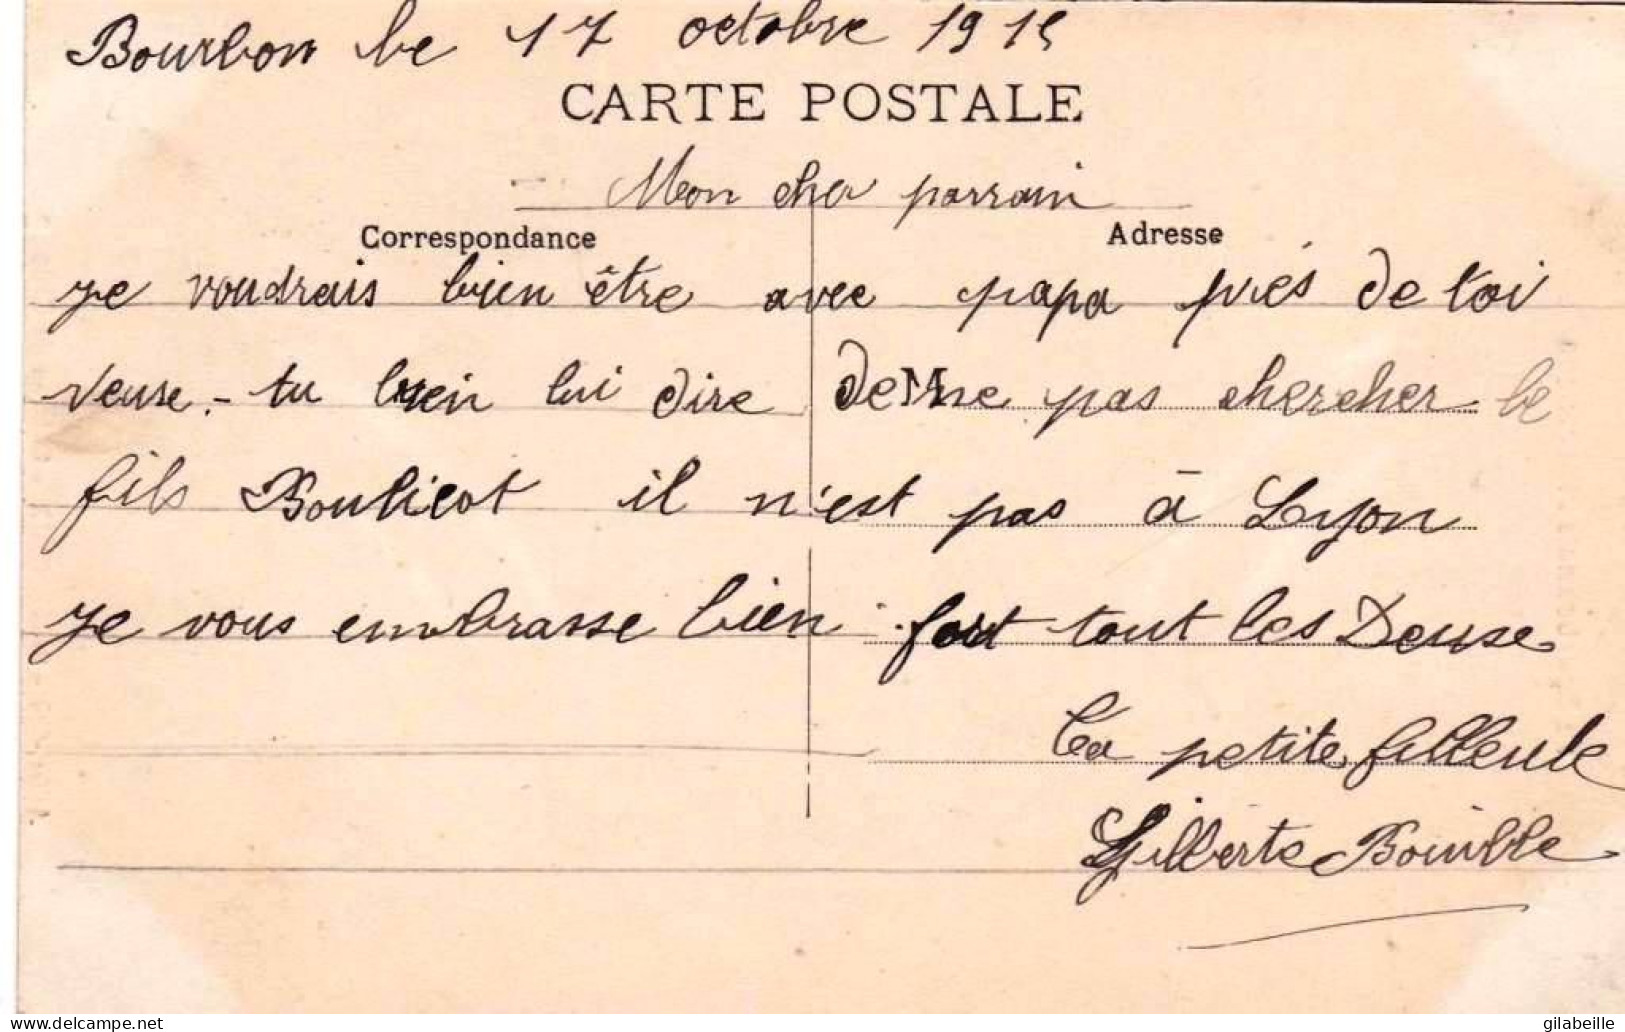 Bourbon le 17 octobre 1915
CARTE POSTALE
Mon cher parrain
Correspondance Adresse
je voudrais bien être avec papa près de toi
veuse - tu bien lui dire de ne pas chercher le
fils Boulicot il n'est pas à Lyon
Je vous embrasse bien fort tout les Deuse
Ta petite filleule
Gilberte
gilabeille